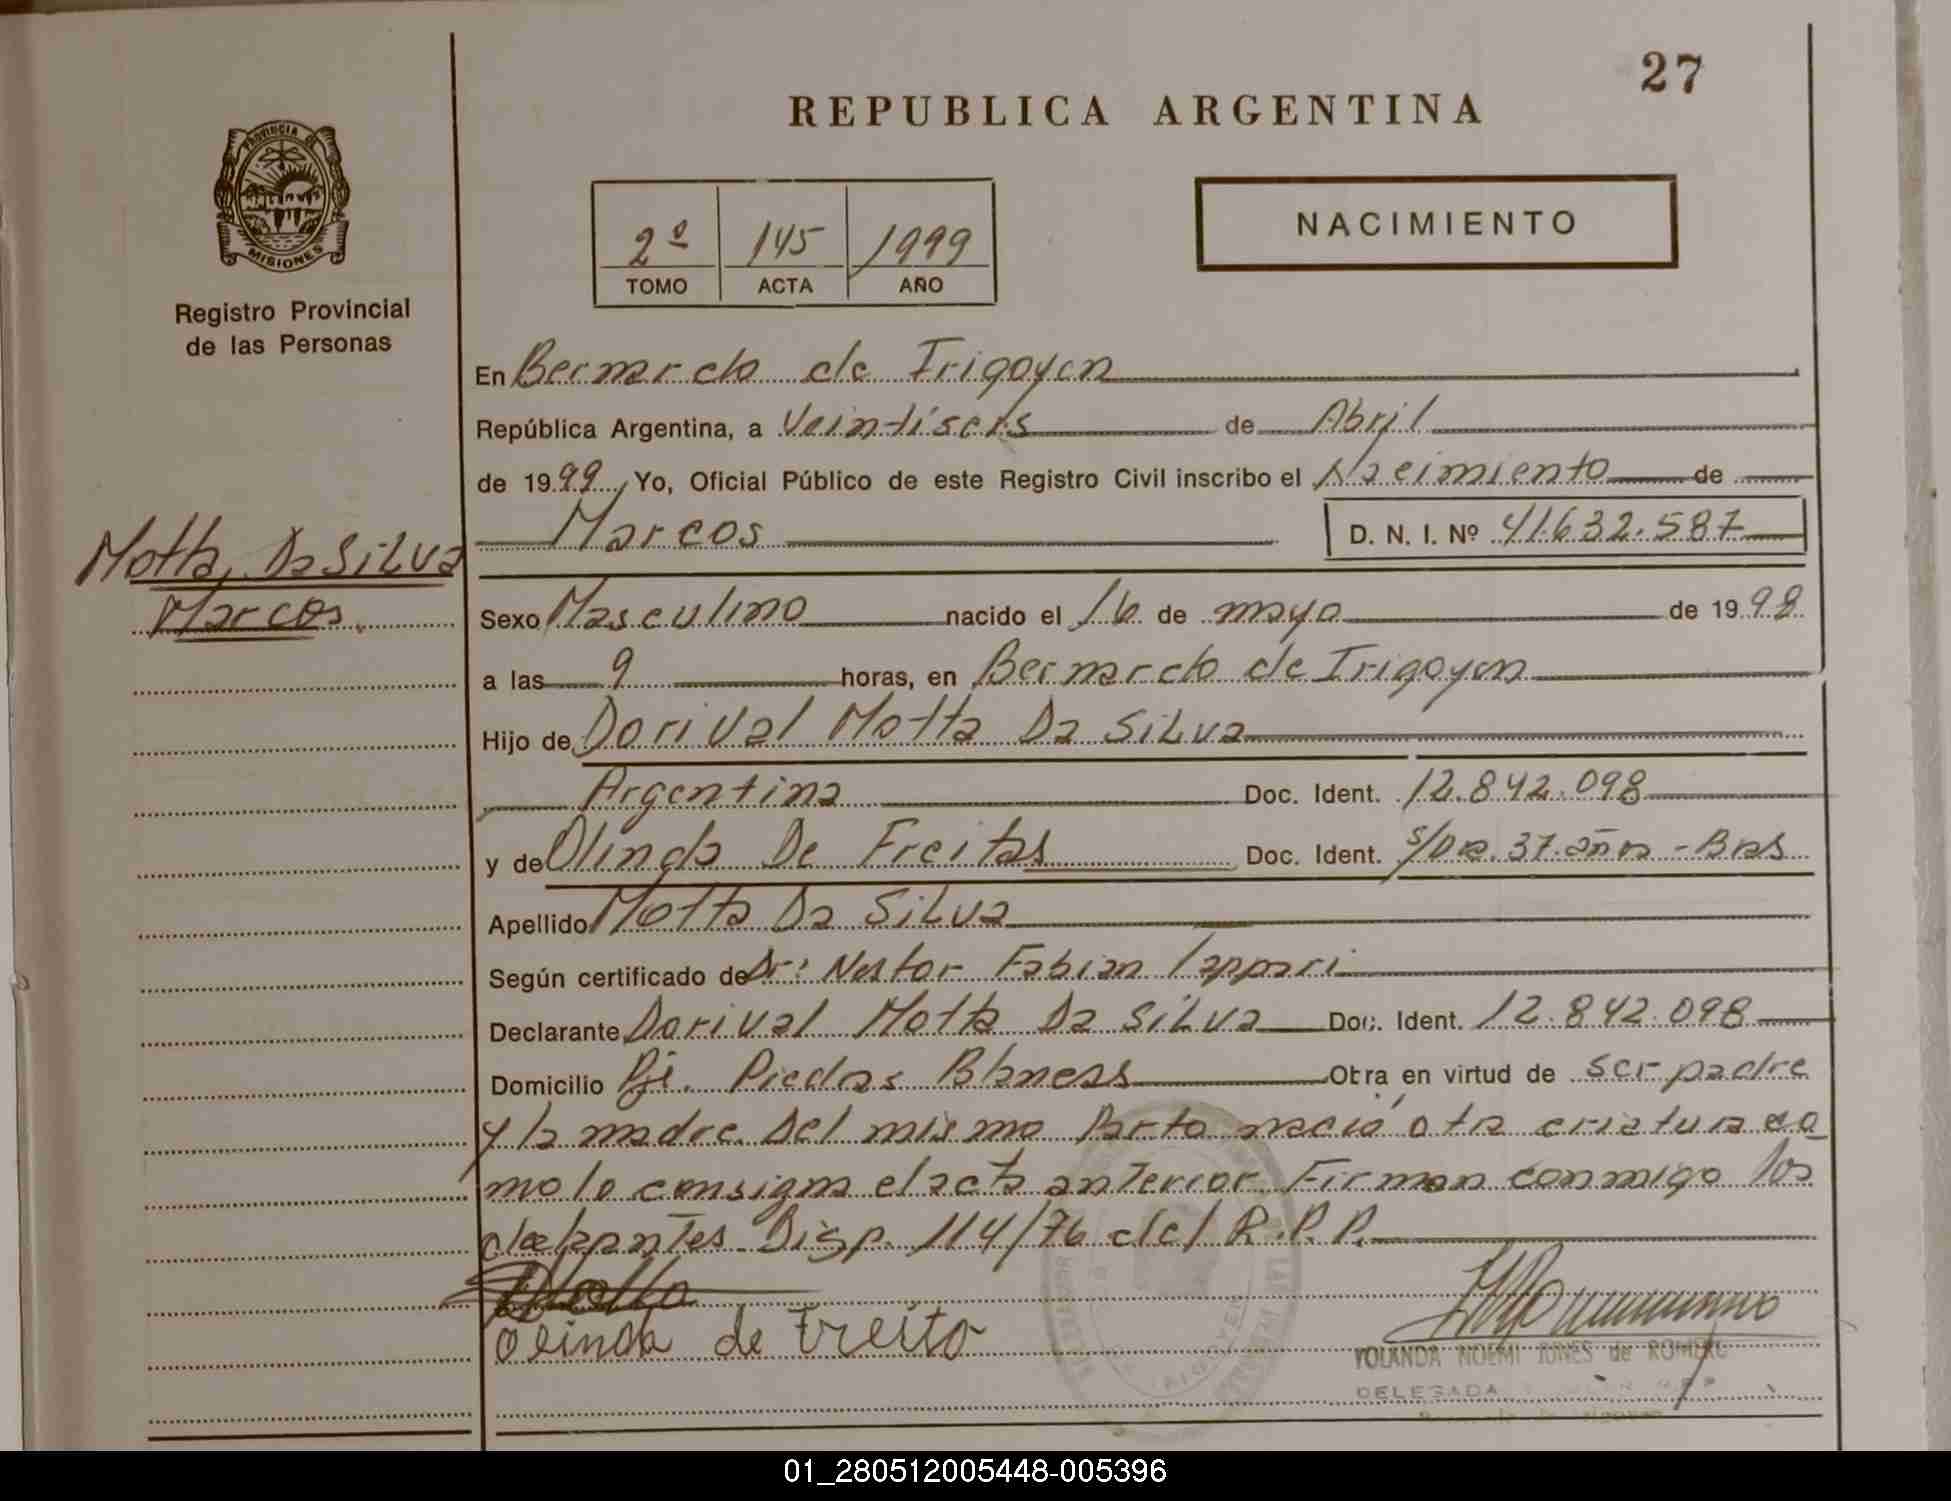 27
REPUBLICA ARGENTINA
PROVINCIA DE
MISIONES
Registro Provincial
de las Personas
2º 145 1999
TOMO ACTA AÑO
NACIMIENTO
En Bernardo de Irigoyen
República Argentina, a Veintiseis de Abril
de 1999 Yo, Oficial Público de este Registro Civil inscribo el Nacimiento de
Marcos D. N. I. Nº 41.632.587
Motta, Da SiLva
Marcos.
Sexo Masculino nacido el 16 de mayo de 1998
a las 9 horas, en Bernardo de Irigoyen
Hijo de DoriVal Motta Da SiLva
Argentina Doc. Ident. 12.842.098
y de Olinda De Freitas Doc. Ident. 37 años - Bras
Apellido Motta Da SiLva
Según certificado de Dr: Nestor Fabian Tappari
Declarante Dorival Motta Da SiLva Doc. Ident. 12.842.098
Domicilio Pje. Piedras Blancas Obra en virtud de ser padre
y la madre. Del mismo Parto nació otra criatura co
mo lo consigna el acta anterior. Firman conmigo los
Disp. 114/76 del R.P.P.
Olinda de Freito
YOLANDA NOEMI JONES de ROMERO
DELEGADA
01_280512005448-005396